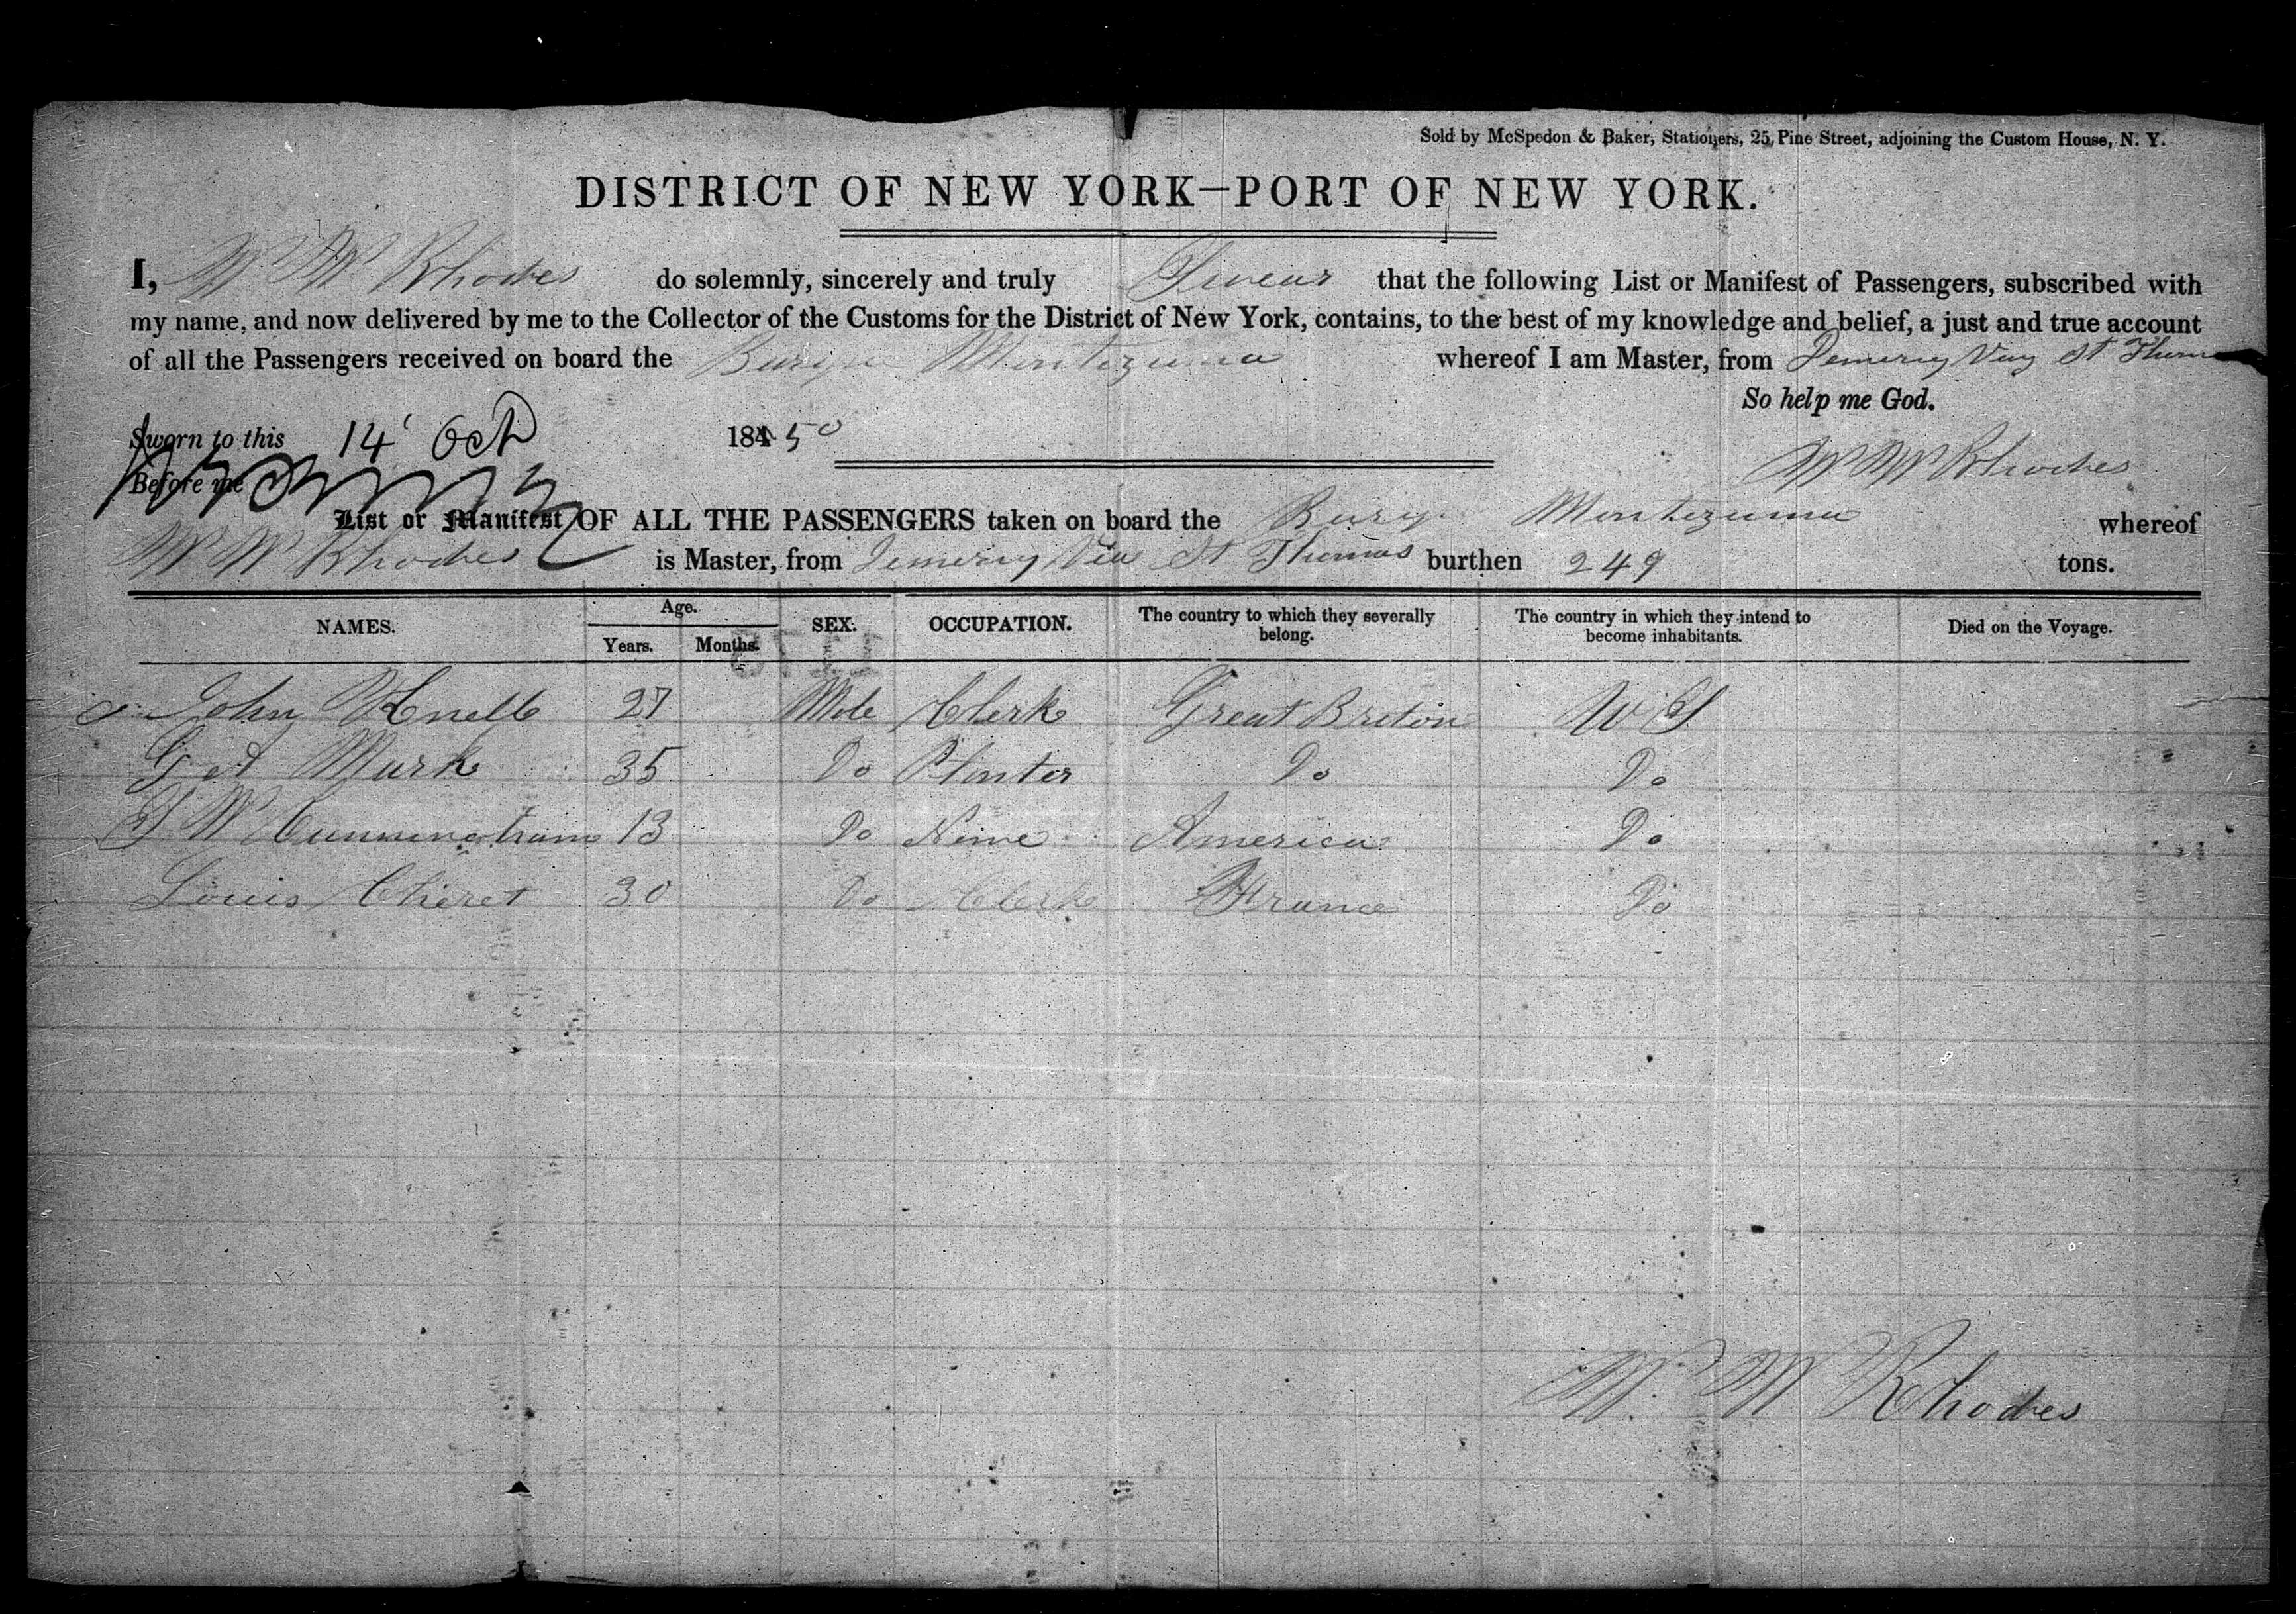 Sold by McSpedon & Baker, Stationers, 25, Pine Street, adjoining the Custom House, N. Y.
DISTRICT OF NEW YORK—PORT OF NEW YORK.
I, W W Rhodes do solemnly, sincerely and truly Swear that the following List or Manifest of Passengers, subscribed with
my name, and now delivered by me to the Collector of the Customs for the District of New York, contains, to the best of my knowledge and belief, a just and true account
of all the Passengers received on board the Barque Montezuma whereof I am Master, from St
So help me God.
Sworn to this 14 Oct 1850
W W Rhodes
Before me
List or Manifest OF ALL THE PASSENGERS taken on board the Montezuma whereof
W W Rhodes is Master, from St Thomas burthen 249 tons.
NAMES. Age. SEX. OCCUPATION. The country to which they severally belong. The country in which they intend to become inhabitants. Died on the Voyage.
Years. Months.
John 27 Male Clerk Great Briton
G A 35 Do Planter Do Do
13 Do None America Do
Louis Cheret 30 Do Clerk France Do
W. W Rhodes